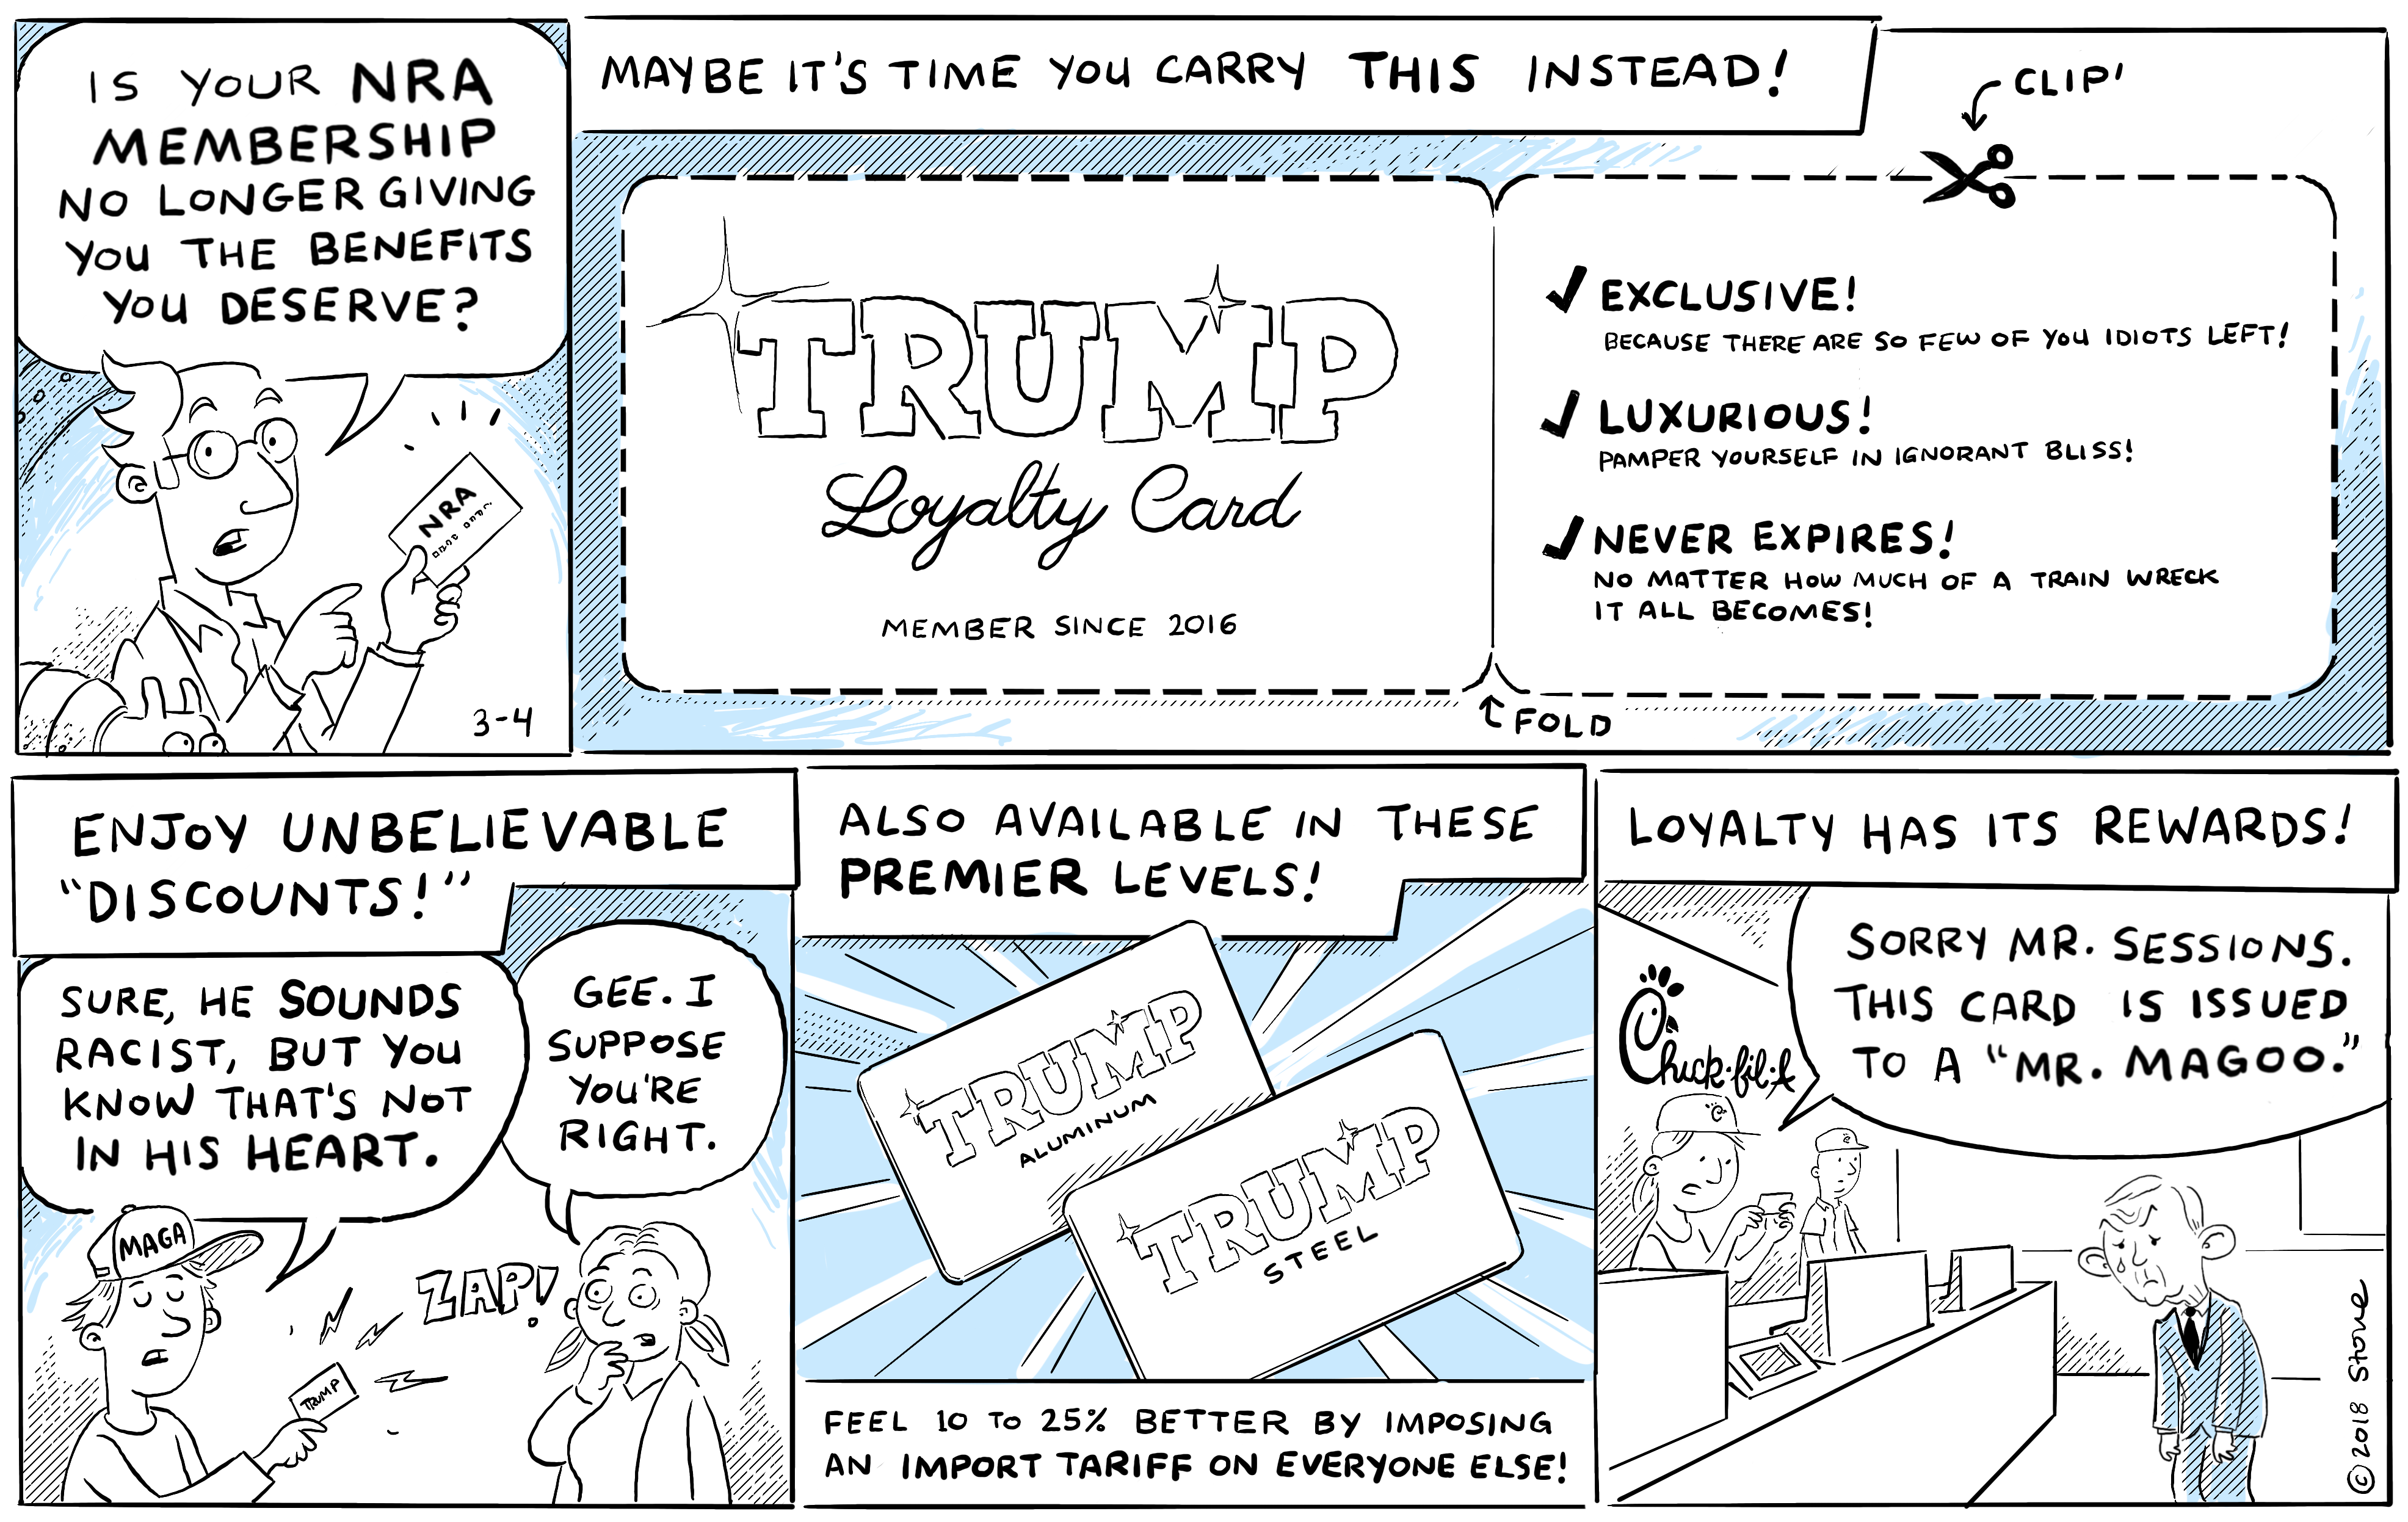 IS YOUR NRA
MEMBERSHIP
NO LONGER GIVING
YOU THE BENEFITS
YOU DESERVE?
NRA
3-4
MAYBE IT'S TIME YOU CARRY THIS INSTEAD!
CLIP'
TRUMP
Loyalty Card
MEMBER SINCE 2016
EXCLUSIVE!
BECAUSE THERE ARE SO FEW OF YOU IDIOTS LEFT!
LUXURIOUS!
PAMPER YOURSELF IN IGNORANT BLISS!
NEVER EXPIRES!
NO MATTER HOW MUCH OF A TRAIN WRECK
IT ALL BECOMES!
FOLD
ENJOY UNBELIEVABLE
"DISCOUNTS!"
SURE, HE SOUNDS
RACIST, BUT YOU
KNOW THAT'S NOT
IN HIS HEART.
GEE. I
SUPPOSE
YOU'RE
RIGHT.
MAGA
ZAP!
TRUMP
ALSO AVAILABLE IN THESE
PREMIER LEVELS!
TRUMP
ALUMINUM
TRUMP
STEEL
FEEL 10 TO 25% BETTER BY IMPOSING
AN IMPORT TARIFF ON EVERYONE ELSE!
LOYALTY HAS ITS REWARDS!
SORRY MR. SESSIONS.
THIS CARD IS ISSUED
TO A "MR. MAGOO."
Chick-fil-A
©2018 Stone